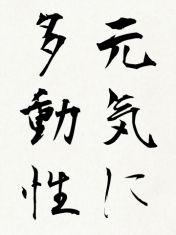 元気に
多動性